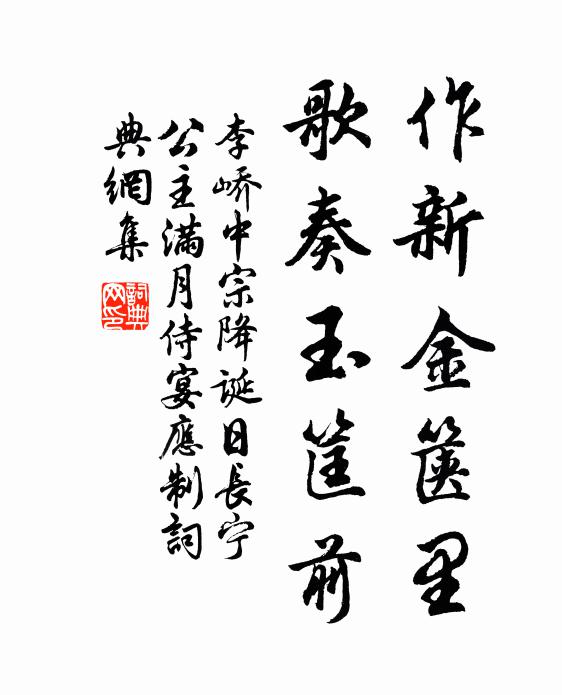 作新金篋里
歌奏玉筐前
李嶠中宗降誕日長宁
公主滿月侍宴應制詞
典網集
詞典网印